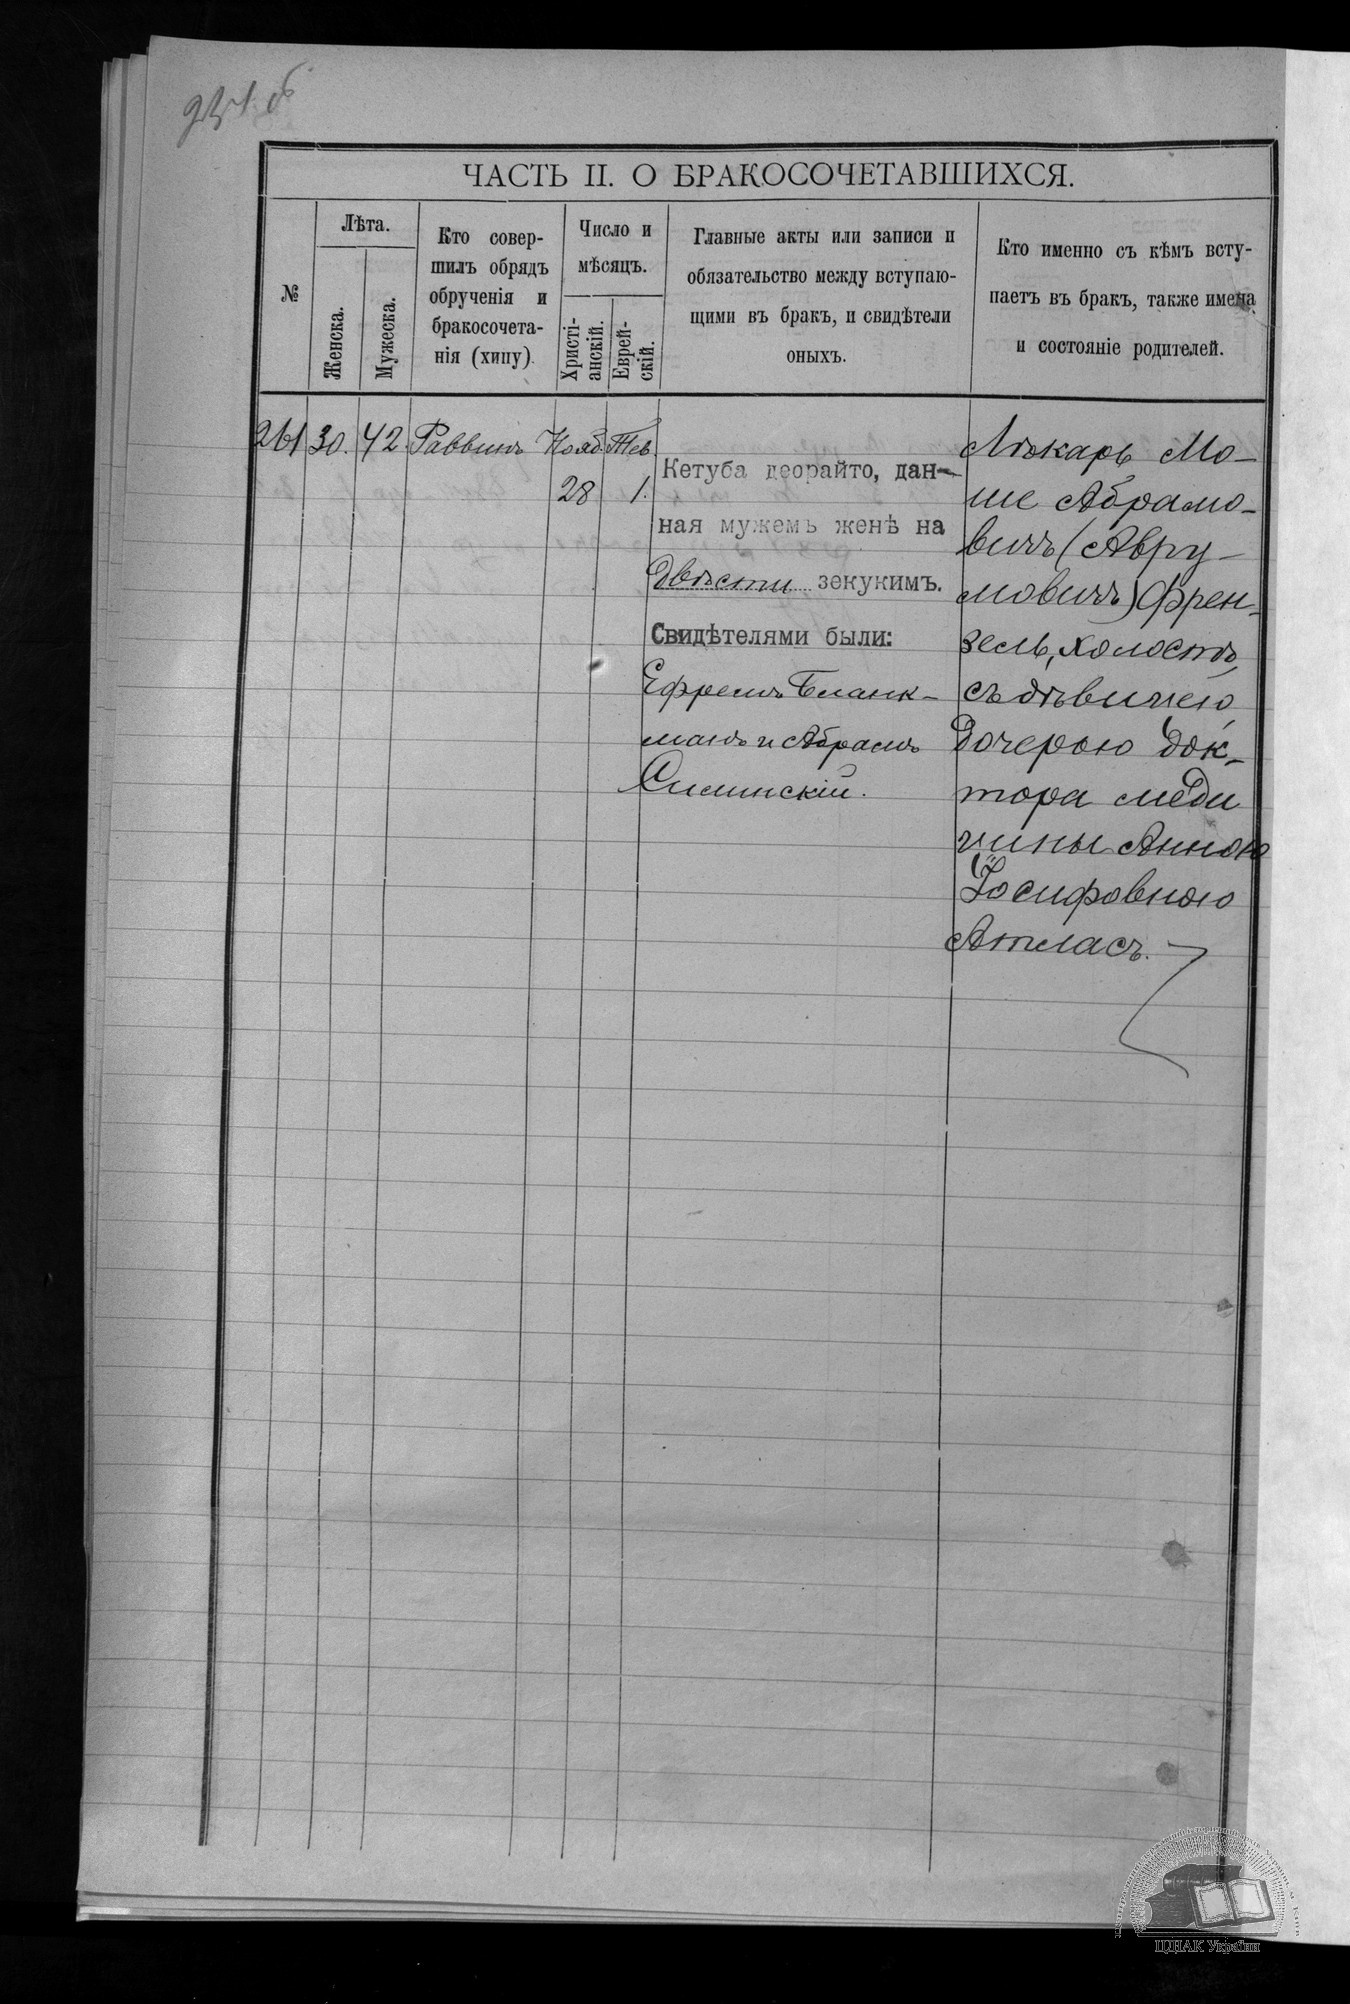 ЧАСТЬ II. О БРАКОСОЧЕТАВШИХСЯ.
№
Лѣта.
Женска.
Мужеска.
Кто совер-
шилъ обрядъ
обрученія и
бракосочета-
нія (хипу).
Число и
мѣсяцъ.
Христі-
анскій.
Еврей-
скій.
Главные акты или записи и
обязательство между вступаю-
щими въ бракъ, и свидѣтели
оныхъ.
Кто именно съ кѣмъ всту-
паетъ въ бракъ, также имена
и состояніе родителей.
261
30.
42.
Раввинъ
Нояб.
28
Тев.
1.
Кетуба деорайто, дан-
ная мужемъ женѣ на
двѣсти зекукимъ.
Свидѣтелями были:
Ефремъ Бланк-
манъ и Абрамъ
Силинскій.
Лѣкарь Мо-
ше Абрамо-
вичъ (Авру-
мовичъ) Френ-
зель, холостъ,
съ дѣвицею,
дочерью док-
тора меди
цины Анною
Іосифовною
Атласъ.
ЦДІАК України